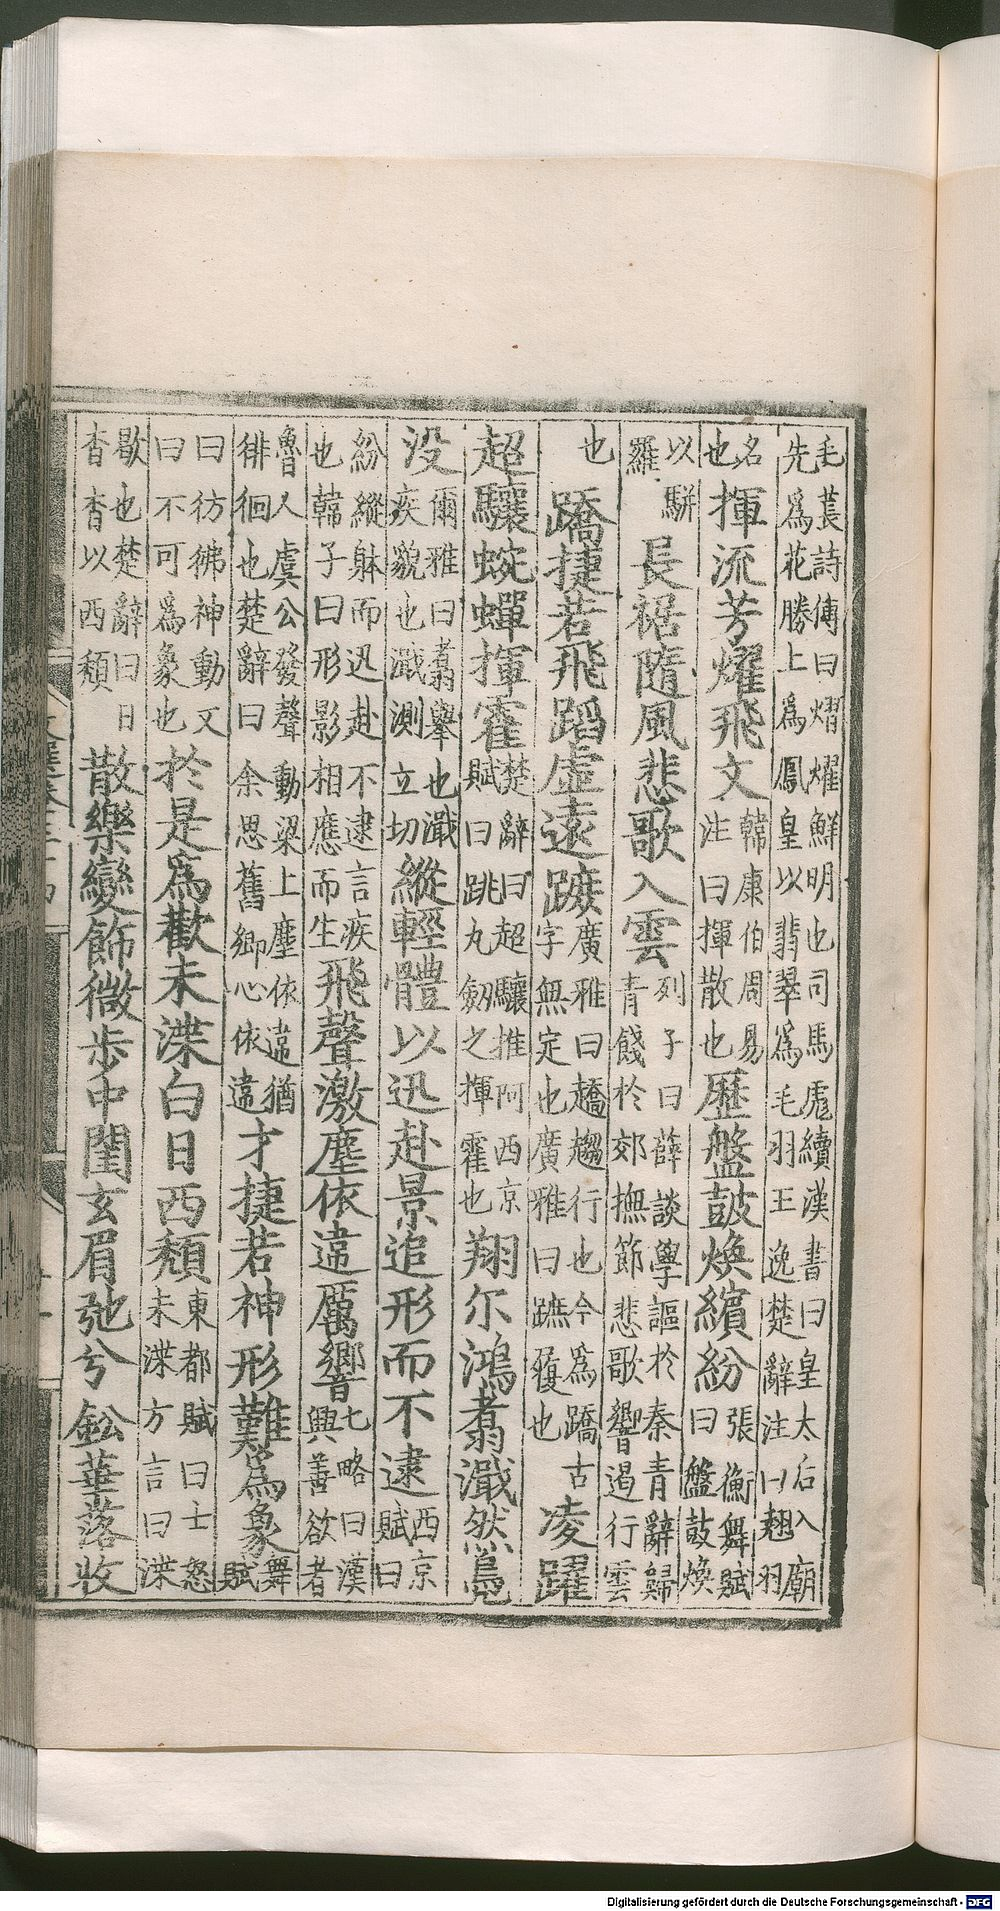 毛萇詩傳曰熠燿鮮明也司馬彪續漢書曰皇太后入廟
先爲花勝上爲鳳皇以翡翠爲毛羽王逸楚辭注曰翹羽
名
也揮流芳燿飛文韓康伯周易
注曰揮散也歷盤鼓煥繽紛張衡舞賦
曰盤鼓煥
以駢
羅長裾隨風悲歌入雲列子曰薛談學謳於秦青辭歸
青餞於郊撫節悲歌響遏行雲
也蹻捷若飛蹈虛遠蹠廣雅曰趫趨行也今爲蹻古
字無定也廣雅曰蹠履也凌躍
超驤蜿蟬揮霍楚辭曰超驤推阿西京
賦曰跳丸劒之揮霍也翔尒鴻翥濈然鳧
没爾雅曰翥舉也濈
疾貌也濈測立切縱輕體以迅赴景追形而不逮西京
賦曰
紛縱躰而迅赴不逮言疾
也韓子曰形影相應而生飛聲激塵依違厲響七略曰漢
興善欲者
魯人虞公發聲動梁上塵依違猶
徘徊也楚辭曰余思舊鄉心依違才捷若神形難爲象舞
賦
曰彷彿神動又
曰不可爲象也於是爲歡未渫白日西頹東都賦曰士怒
未渫方言曰渫
歇也楚辭曰日
杳杳以西頹散樂變飾微步中閨玄眉弛兮鈆華落收
Digitalisierung gefördert durch die Deutsche Forschungsgemeinschaft - DFG